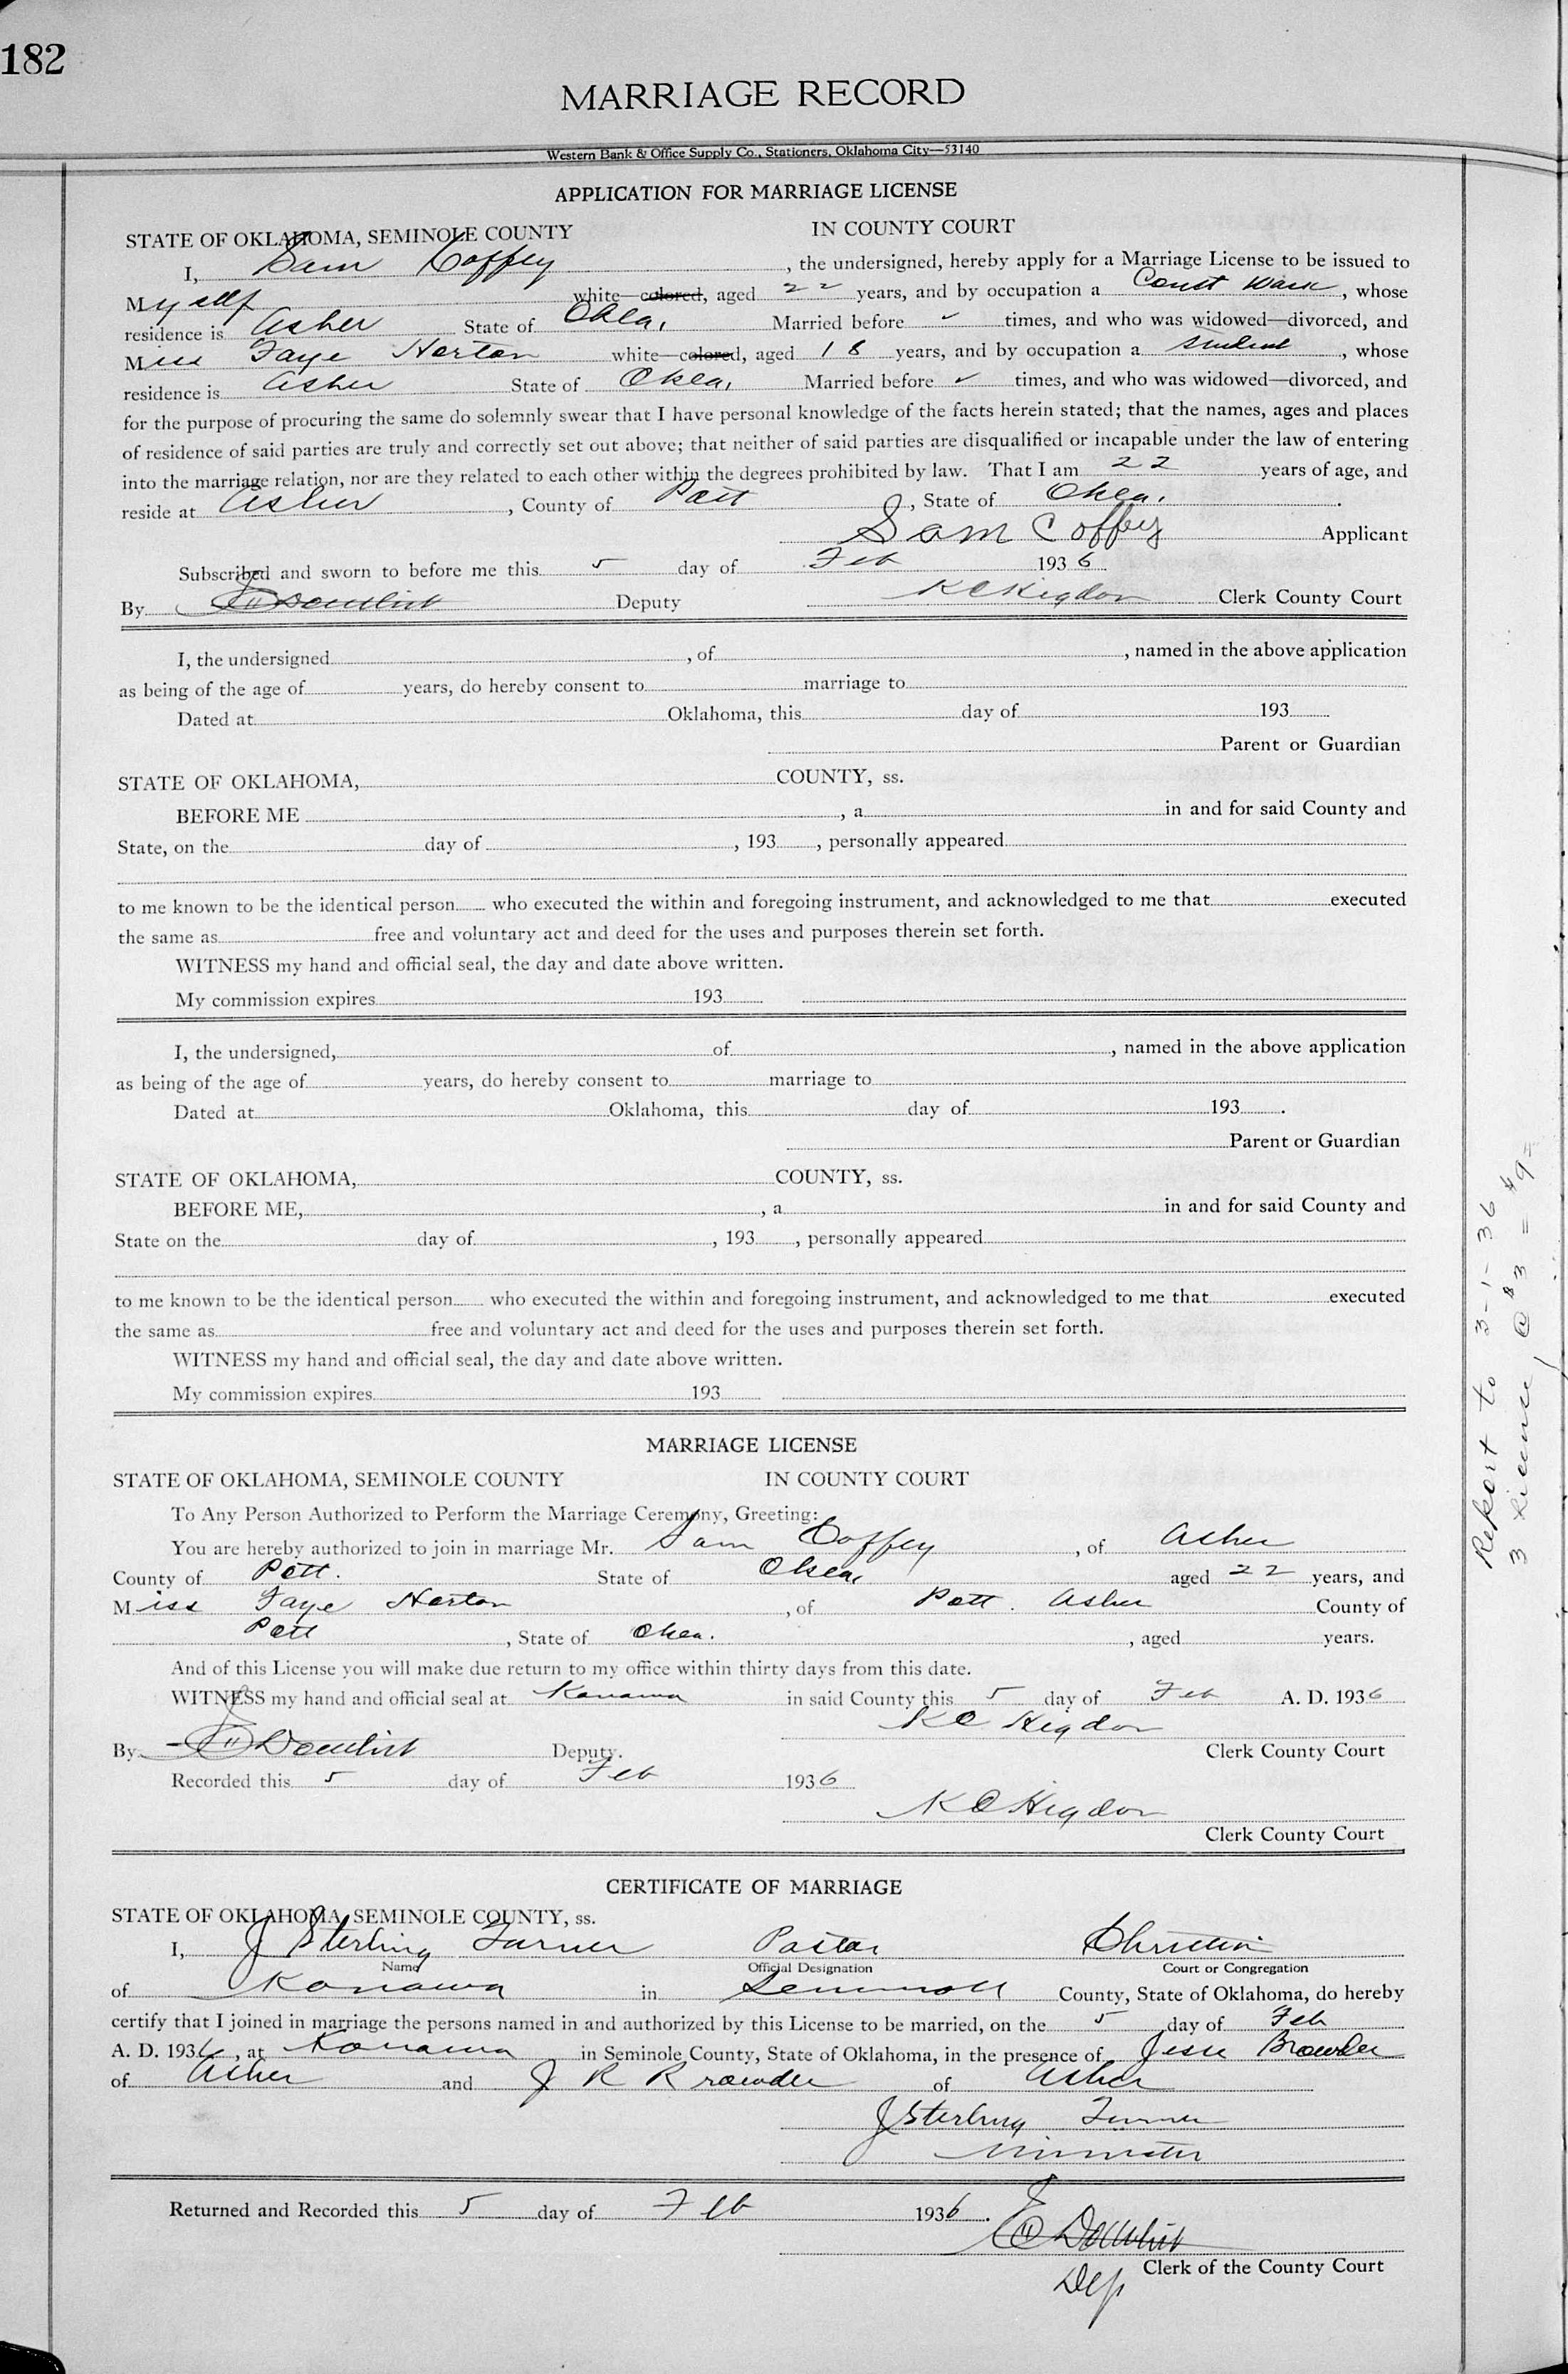 182
MARRIAGE RECORD
Western Bank & Office Supply Co., Stationers, Oklahoma City—53140
APPLICATION FOR MARRIAGE LICENSE
STATE OF OKLAHOMA, SEMINOLE COUNTY IN COUNTY COURT
I, Sam Coffey, the undersigned, hereby apply for a Marriage License to be issued to
Myself white—colored, aged 22 years, and by occupation a Const Work, whose
residence is Asher State of Okla. Married before ✓ times, and who was widowed—divorced, and
Miss Faye Horton white—colored, aged 18 years, and by occupation a Student, whose
residence is Asher State of Okla. Married before ✓ times, and who was widowed—divorced, and
for the purpose of procuring the same do solemnly swear that I have personal knowledge of the facts herein stated; that the names, ages and places
of residence of said parties are truly and correctly set out above; that neither of said parties are disqualified or incapable under the law of entering
into the marriage relation, nor are they related to each other within the degrees prohibited by law. That I am 22 years of age, and
reside at Asher, County of Pott, State of Okla.
Sam Coffey Applicant
Subscribed and sworn to before me this 5 day of Feb 1936
By Deputy K C Higdon Clerk County Court
I, the undersigned, of, named in the above application
as being of the age of years, do hereby consent to marriage to
Dated at Oklahoma, this day of 193
Parent or Guardian
STATE OF OKLAHOMA, COUNTY, ss.
BEFORE ME, a in and for said County and
State, on the day of, 193, personally appeared
to me known to be the identical person who executed the within and foregoing instrument, and acknowledged to me that executed
the same as free and voluntary act and deed for the uses and purposes therein set forth.
WITNESS my hand and official seal, the day and date above written.
My commission expires 193
I, the undersigned, of, named in the above application
as being of the age of years, do hereby consent to marriage to
Dated at Oklahoma, this day of 193.
Parent or Guardian
STATE OF OKLAHOMA, COUNTY, ss.
BEFORE ME, , a in and for said County and
State on the day of, 193, personally appeared
to me known to be the identical person who executed the within and foregoing instrument, and acknowledged to me that executed
the same as free and voluntary act and deed for the uses and purposes therein set forth.
WITNESS my hand and official seal, the day and date above written.
My commission expires 193
MARRIAGE LICENSE
STATE OF OKLAHOMA, SEMINOLE COUNTY IN COUNTY COURT
To Any Person Authorized to Perform the Marriage Ceremony, Greeting:
You are hereby authorized to join in marriage Mr. Sam Coffey, of Asher
County of Pott. State of Okla. aged 22 years, and
Miss Faye Horton, of Pott. Asher County of
Pott, State of Okla., aged years.
And of this License you will make due return to my office within thirty days from this date.
WITNESS my hand and official seal at Konawa in said County this 5 day of Feb A. D. 1936
K C Higdon
By Deputy. Clerk County Court
Recorded this 5 day of Feb 1936
K C Higdon
Clerk County Court
CERTIFICATE OF MARRIAGE
STATE OF OKLAHOMA, SEMINOLE COUNTY, ss.
I, J Sterling Turner Pastor Christian
Name Official Designation Court or Congregation
of Konawa in Seminole County, State of Oklahoma, do hereby
certify that I joined in marriage the persons named in and authorized by this License to be married, on the 5 day of Feb
A. D. 1936, at Konawa in Seminole County, State of Oklahoma, in the presence of Jesse Browder
of Asher and J R Browder of Asher
J Sterling Turner
Minister
Returned and Recorded this 5 day of Feb 1936.
Clerk of the County Court
Dep
Report to 3-1-36
3 License @ $3 = $9=